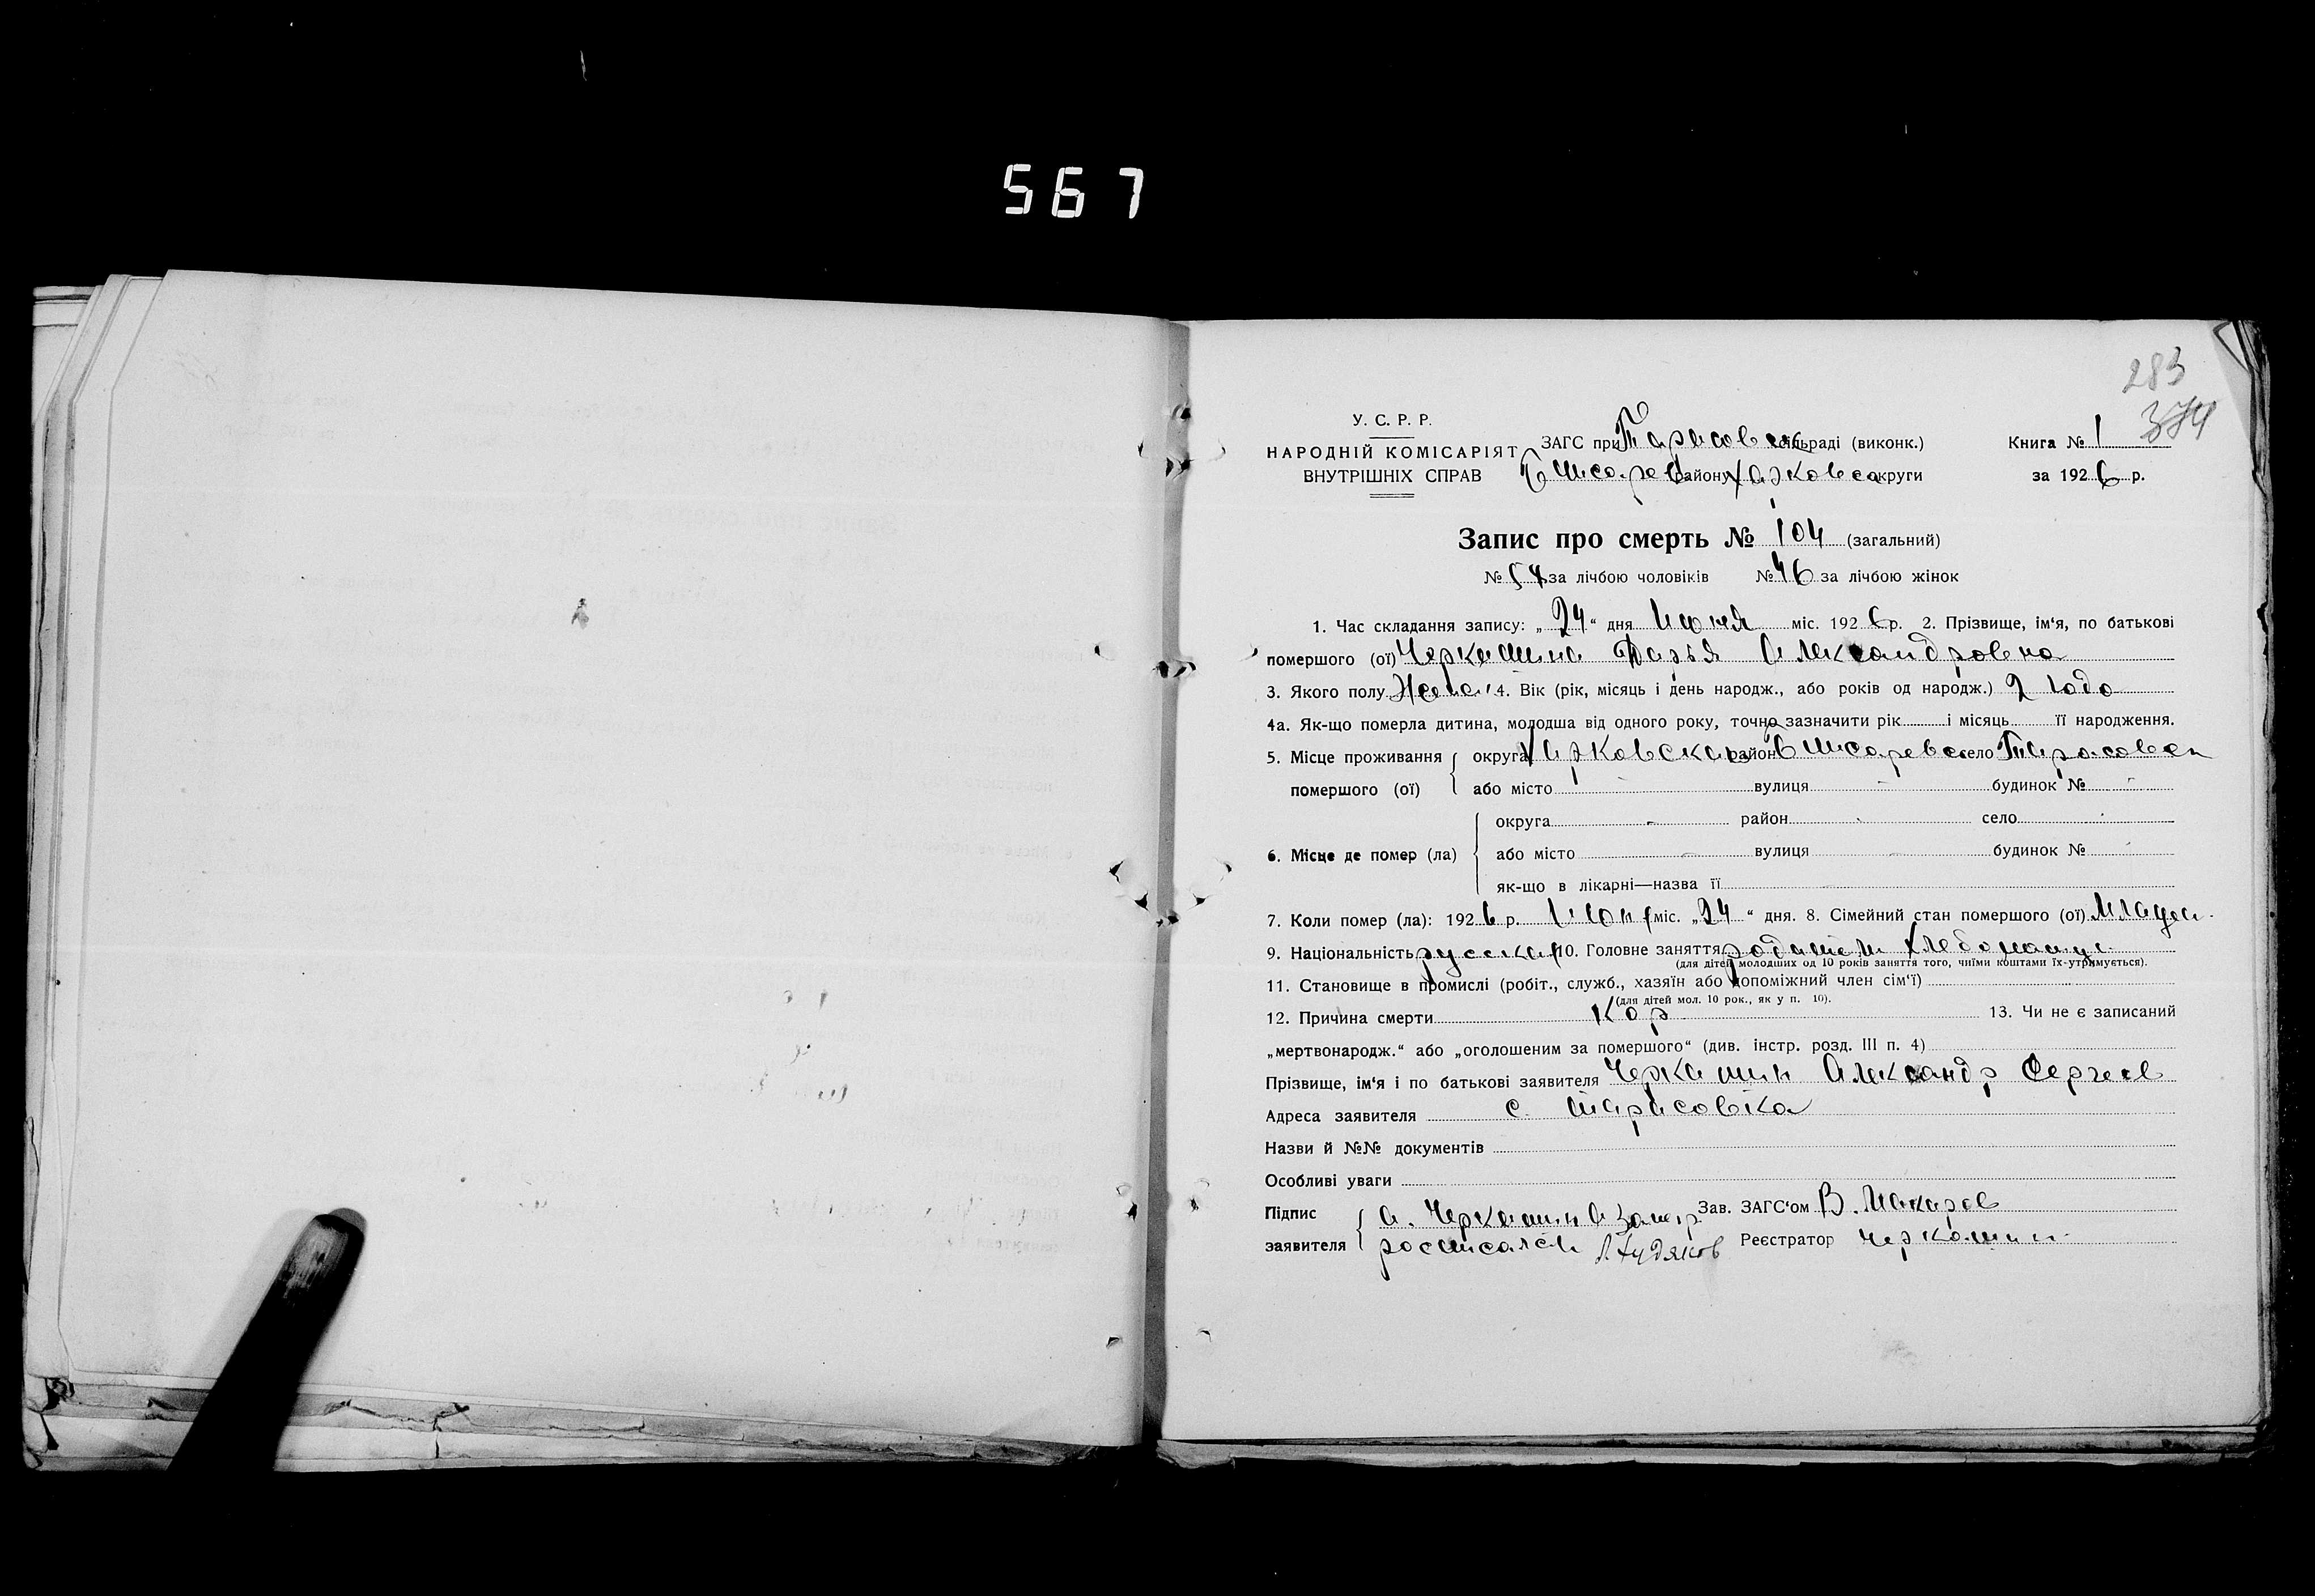 567
283
374
У. С. Р. Р.
НАРОДНІЙ КОМІСАРІЯТ
ВНУТРІШНІХ СПРАВ
ЗАГС при Тарасовск сільраді (виконк.)
В Писарев району Харковско округи
Книга № 1
за 1926 р.
Запис про смерть № 104 (загальний)
№ 58 за лічбою чоловіків № 46 за лічбою жінок
1. Час складання запису: „24“ дня Июня міс. 1926 р. 2. Прізвище, ім‘я, по батькові
помершого (ої) Черкашина Дарья Александровна
3. Якого полу Женск 4. Вік (рік, місяць і день народж., або років од народж.) 2 года
4а. Як-що померла дитина, молодша від одного року, точно зазначити рік і місяць її народження.
5. Місце проживання помершого (ої) округа Харковская район В Писаревск село Тарасовск
або місто - вулиця - будинок № -
6. Місце де помер (ла) округа - район - село -
або місто - вулиця - будинок № -
як-що в лікарні—назва її
7. Коли помер (ла): 1926 р. Июня міс. „24“ дня. 8. Сімейний стан помершого (ої) Младен.
9. Національність русская 10. Головне заняття родители хлебопашц.
(для дітей молодших од 10 років заняття того, чиїми коштами їх-утримується).
11. Становище в промислі (робіт., служб., хазяїн або допоміжний член сім‘ї)
(для дітей мол. 10 рок., як у п. 10).
12. Причина смерти Кор 13. Чи не є записаний
„мертвонародж.“ або „оголошеним за помершого“ (див. інстр. розд. III п. 4)
Прізвище, ім‘я і по батькові заявителя Черкашин Александр Сергеев
Адреса заявителя с. Тарасовка
Назви й №№ документів
Особливі уваги
Підпис заявителя А. Черкашин а за негр
росписался Худяков
Зав. ЗАГС‘ом В. Макаров
Реєстратор Черкашин